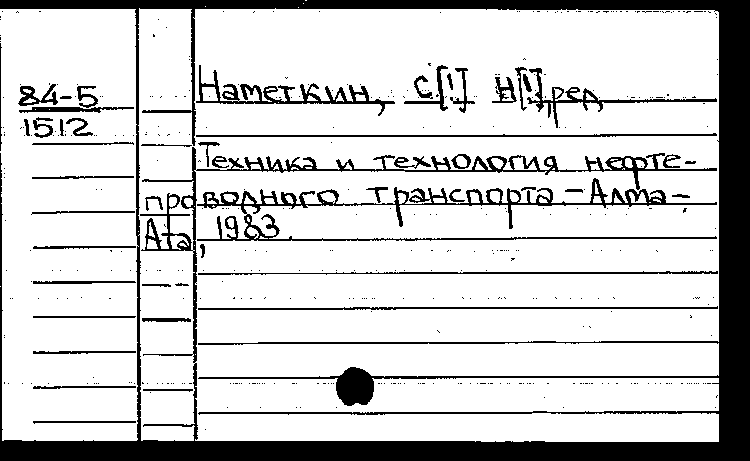 84-5
1512
Наметкин, С[!] Н[!], ред.
Техника и технология нефте-
проводного транспорта.-Алма-
Ата, 1983.